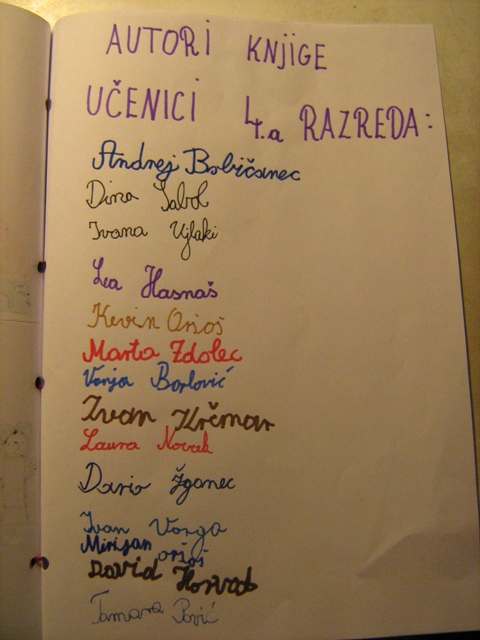 AUTORI KNJIGE
UČENICI 4.a RAZREDA:
Andrej Bobičanec
Dina Sabol
Ivana Ujlaki
Lea Hasnaš
Kevin Oršoš
Marta Zdolec
Vanja Borlović
Ivan Krčmar
Laura Novak
Dario Žganec
Ivan Varga
Mirijan oršoš
David Horvat
Tamara